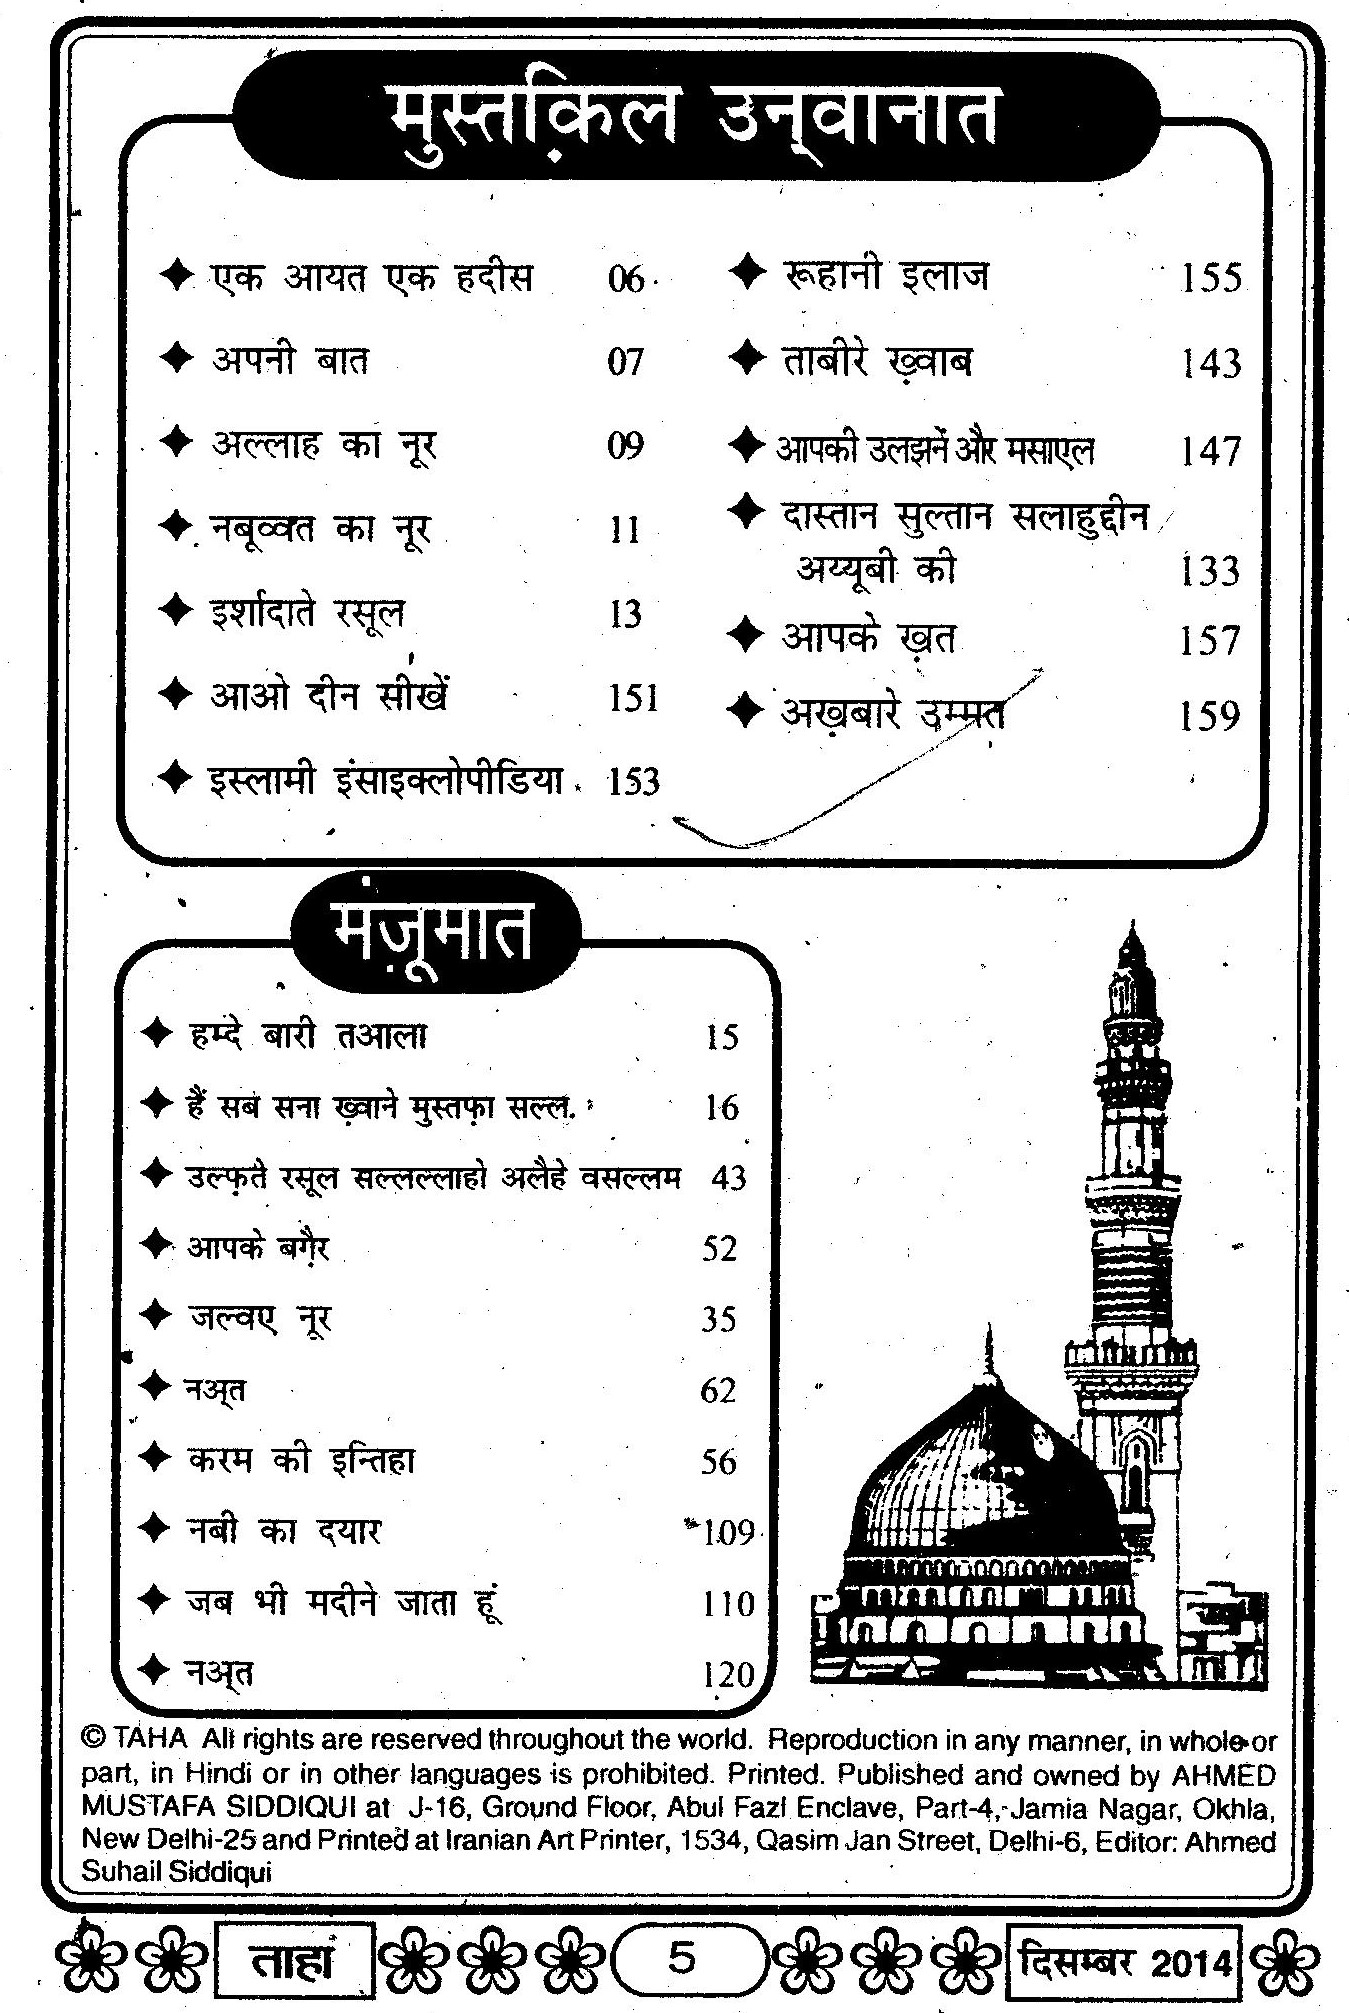 मुस्तक़िल उन्वानात
✦ एक आयत एक हदीस 06
✦ अपनी बात 07
✦ अल्लाह का नूर 09
✦ नबूव्वत का नूर 11
✦ इर्शादाते रसूल 13
✦ आओ दीन सीखें 151
✦ इस्लामी इंसाइक्लोपीडिया 153
✦ रूहानी इलाज 155
✦ ताबीरे ख़्वाब 143
✦ आपकी उलझनें और मसाएल 147
✦ दास्तान सुल्तान सलाहुद्दीन
अय्यूबी की 133
✦ आपके ख़त 157
✦ अख़बारे उम्मत 159
मंज़ूमात
✦ हम्दे बारी तआला 15
✦ हैं सब सना ख़्वाने मुस्तफ़ा सल्ल. 16
✦ उल्फ़ते रसूल सल्लल्लाहो अलैहे वसल्लम 43
✦ आपके बग़ैर 52
✦ जल्वए नूर 35
✦ नअ्त 62
✦ करम की इन्तिहा 56
✦ नबी का दयार 109
✦ जब भी मदीने जाता हूं 110
✦ नअ्त 120
© TAHA All rights are reserved throughout the world. Reproduction in any manner, in whole or
part, in Hindi or in other languages is prohibited. Printed. Published and owned by AHMED
MUSTAFA SIDDIQUI at J-16, Ground Floor, Abul Fazl Enclave, Part-4, Jamia Nagar, Okhla,
New Delhi-25 and Printed at Iranian Art Printer, 1534, Qasim Jan Street, Delhi-6, Editor: Ahmed
Suhail Siddiqui
ताहा 5 दिसम्बर 2014